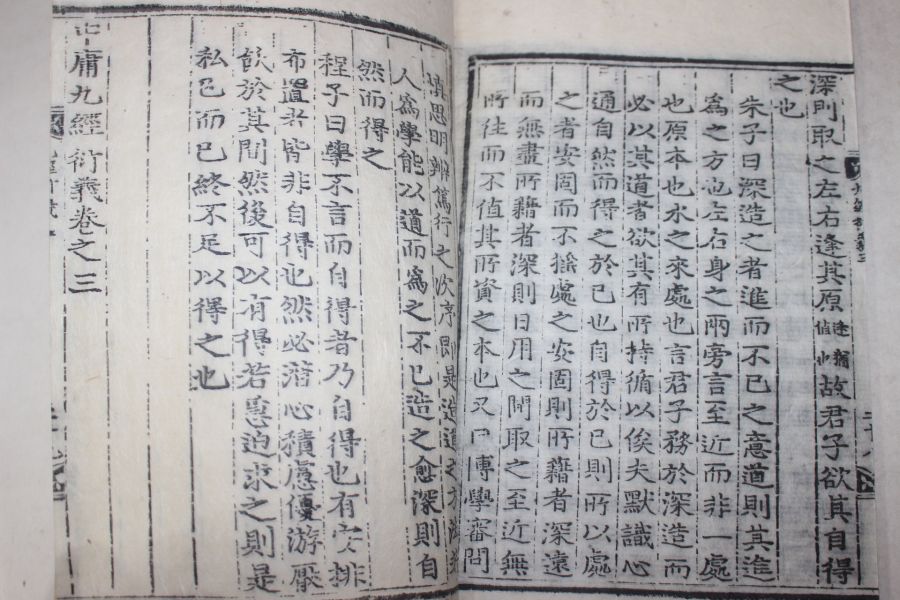 深則取之左右逢其原逢猶值也故君子欲其自得
之也
朱子曰深造之者進而不已之意道則其進
為之方也左右身之兩旁言至近而非一處
也原本也水之來處也言君子務於深造而
必以其道者欲其有所持循以俟夫默識心
通自然而得之於己也自得於己則所以處
之者安固而不搖處之安固則所藉者深遠
而無盡所藉者深則日用之間取之至近無
所往而不值其所資之本也又曰博學審問
慎思明辨篤行之次序即是造道之方法若
人為學能以道而為之不已造之愈深則自
然而得之
程子曰學不言而自得者乃自得也有安排
布置者皆非自得也然必潛心積慮優游厭
飫於其間然後可以有得若急迫求之則是
私己而已終不足以得之也
中庸九經衍義卷之三